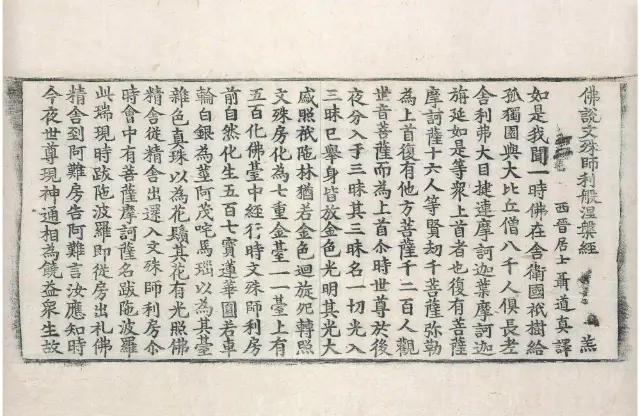 佛說文殊師利般涅槃經 羔
西晉居士聶道真譯
如是我聞一時佛在舍衛國祇樹給
孤獨園與大比丘僧八千人俱長老
舍利弗大目揵連摩訶迦葉摩訶迦
旃延如是等眾上首者也復有菩薩
摩訶薩十六人等賢劫千菩薩弥勒
為上首復有他方菩薩千二百人觀
世音菩薩而為上首尒時世尊於後
夜分入于三昧其三昧名一切光入
三昧已舉身皆放金色光明其光大
盛照祇陁林猶若金色迴旋宛轉照
文殊房化為七重金臺一一臺上有
五百化佛臺中經行時文殊師利房
前自然化生五百七寶蓮華圓若車
輪白銀為莖阿茂吒馬瑙以為其臺
雜色真珠以為花鬚其花有光照佛
精舍從精舍出還入文殊師利房尒
時會中有菩薩摩訶薩名跋陁波羅
此瑞現時跋陁波羅即從房出礼佛
精舍到阿難房告阿難言汝應知時
今夜世尊現神通相為饒益衆生故